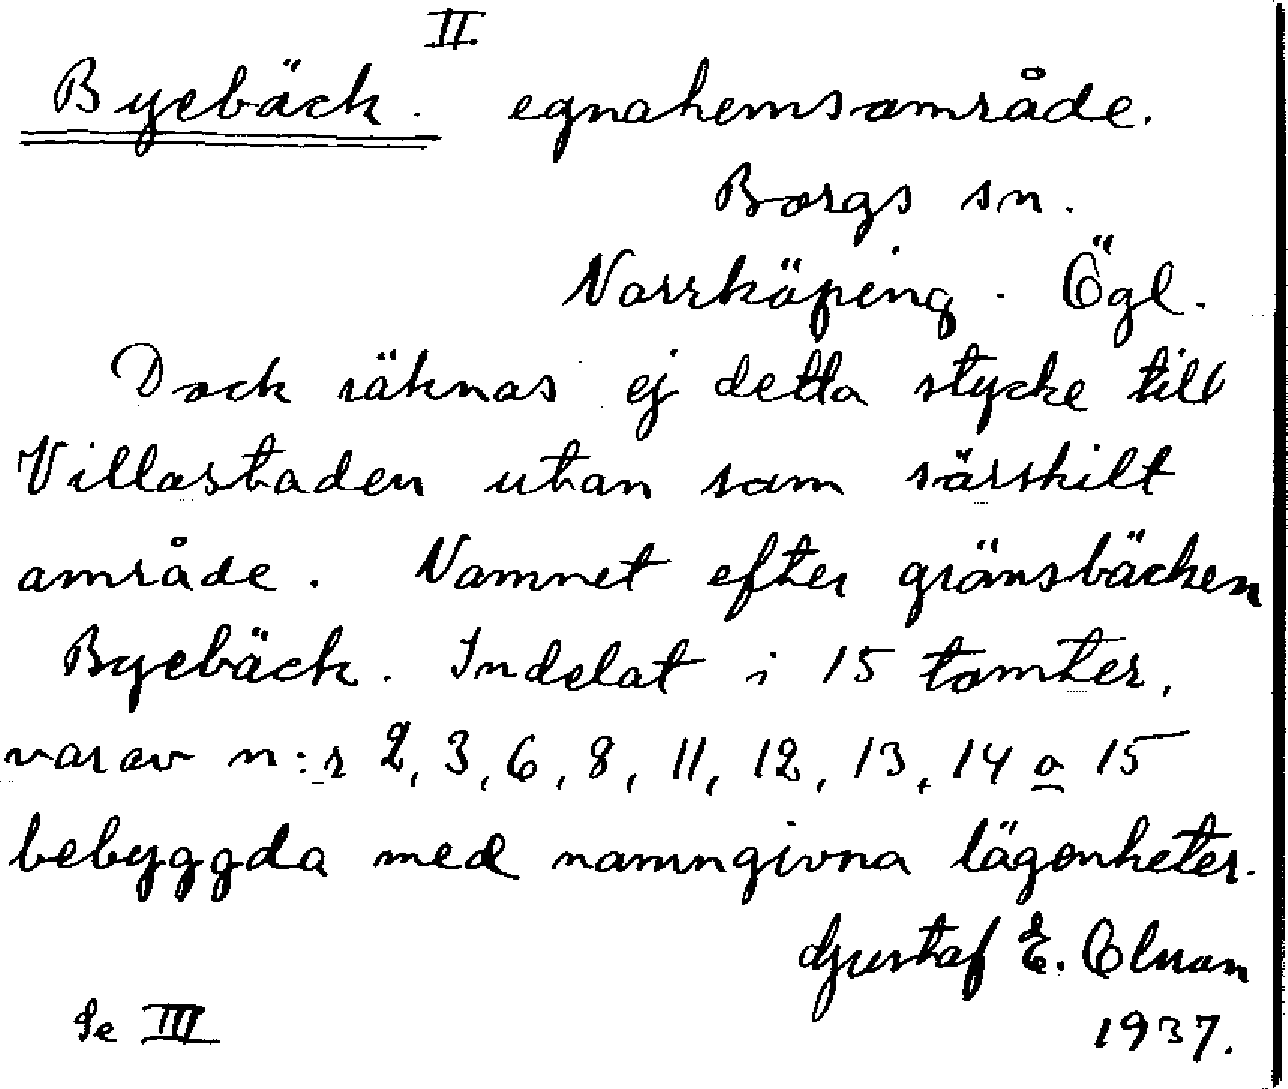 II
Byebäck. egnahemsområde.
Borgs sn.
Norrköping. Ögl.
Dock räknas ej detta stycke till
Villastaden utan som särskilt
område. Namnet efter gränsbäcken
Byebäck. Indelat i 15 tomter,
varav n:r 2, 3, 6, 8, 11, 12, 13, 14 o 15
bebyggda med namngivna lägenheter.
Gustaf E. Olsson
Se III 1937.